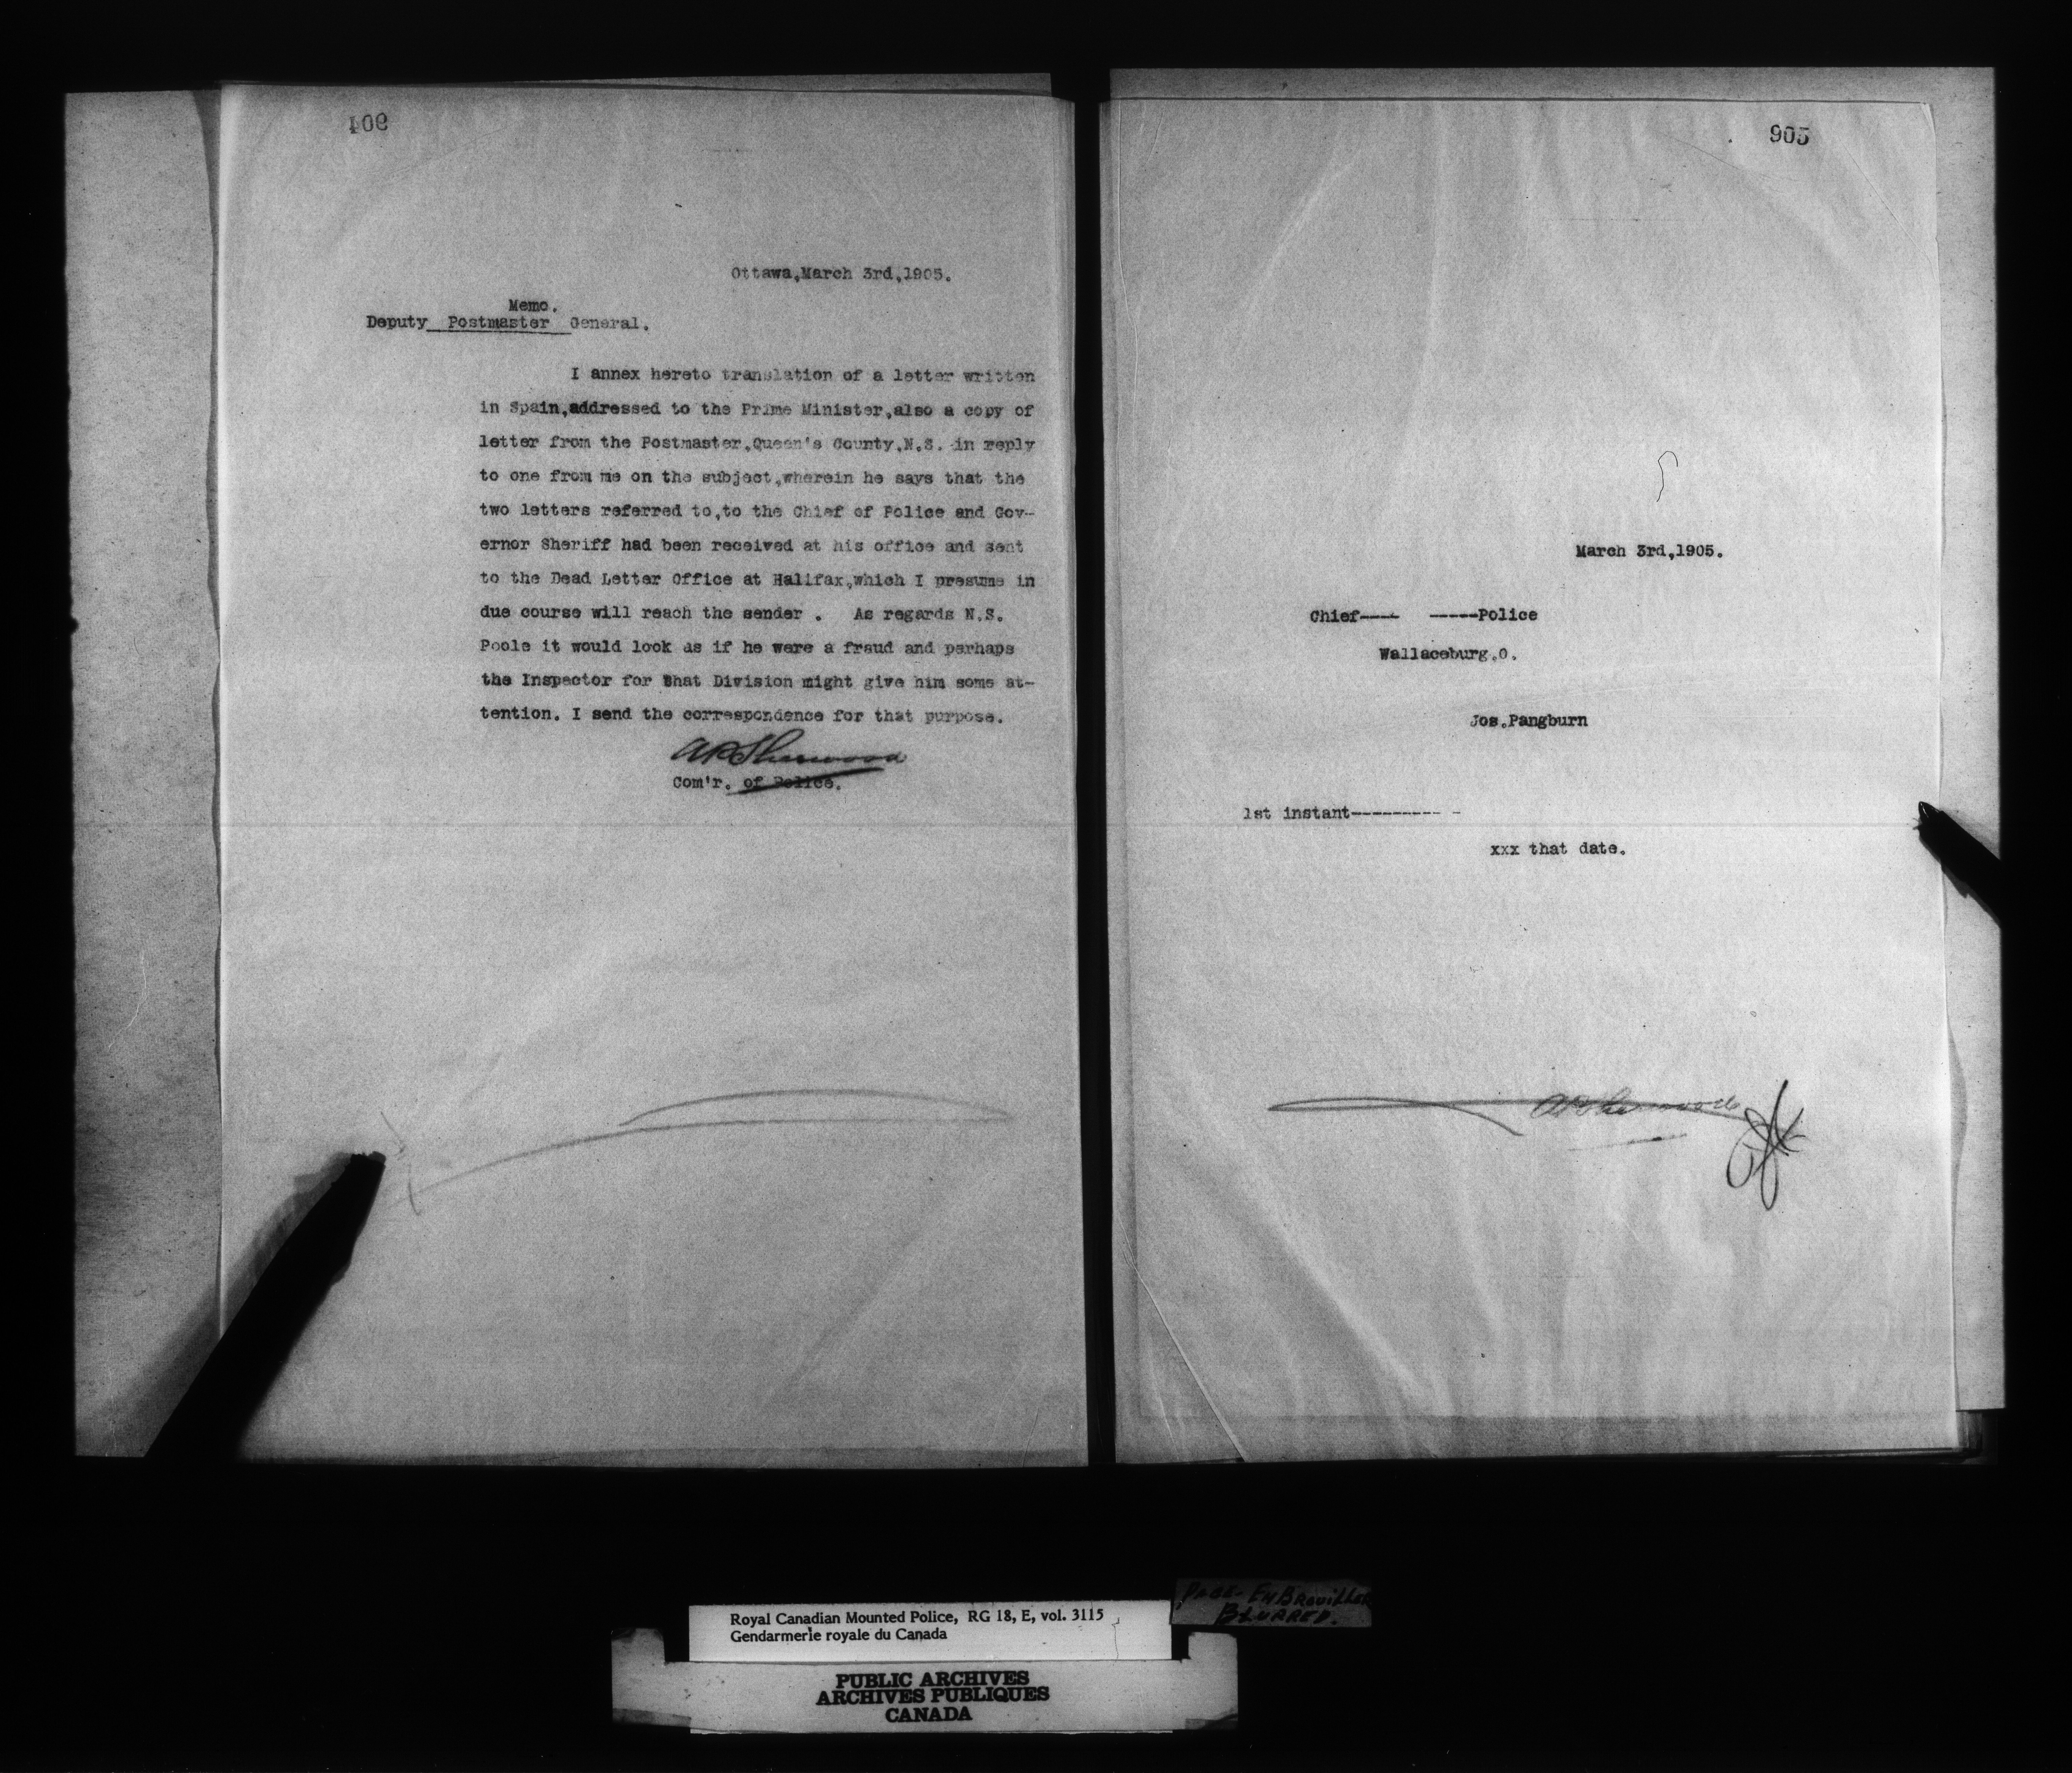 904
Ottawa,March 3rd,1905.
Memo.
Deputy Postmaster General.
I annex hereto translation of a letter written
in Spain,addressed to the Prime Minister,also a copy of
letter from the Postmaster,Queen's County,N.S. in reply
to one from me on the subject,wherein he says that the
two letters referred to,to the Chief of Police and Gov-
ernor Sheriff had been received at his office and sent
to the Dead Letter Office at Halifax,which I presume in
due course will reach the sender . As regards N.S.
Poole it would look as if he were a fraud and perhaps
the Inspector for that Division might give him some at-
tention. I send the correspondence for that purpose.
APSherwood
Com'r. of Police.
905
March 3rd,1905.
Chief---- -----Police
Wallaceburg.O.
Jos.Pangburn
1st instant--------- -
xxx that date.
APSherwood
Royal Canadian Mounted Police, RG 18, E, vol. 3115
Gendarmerie royale du Canada
PAGE EMBROUILLEE
BLURRED.
PUBLIC ARCHIVES
ARCHIVES PUBLIQUES
CANADA